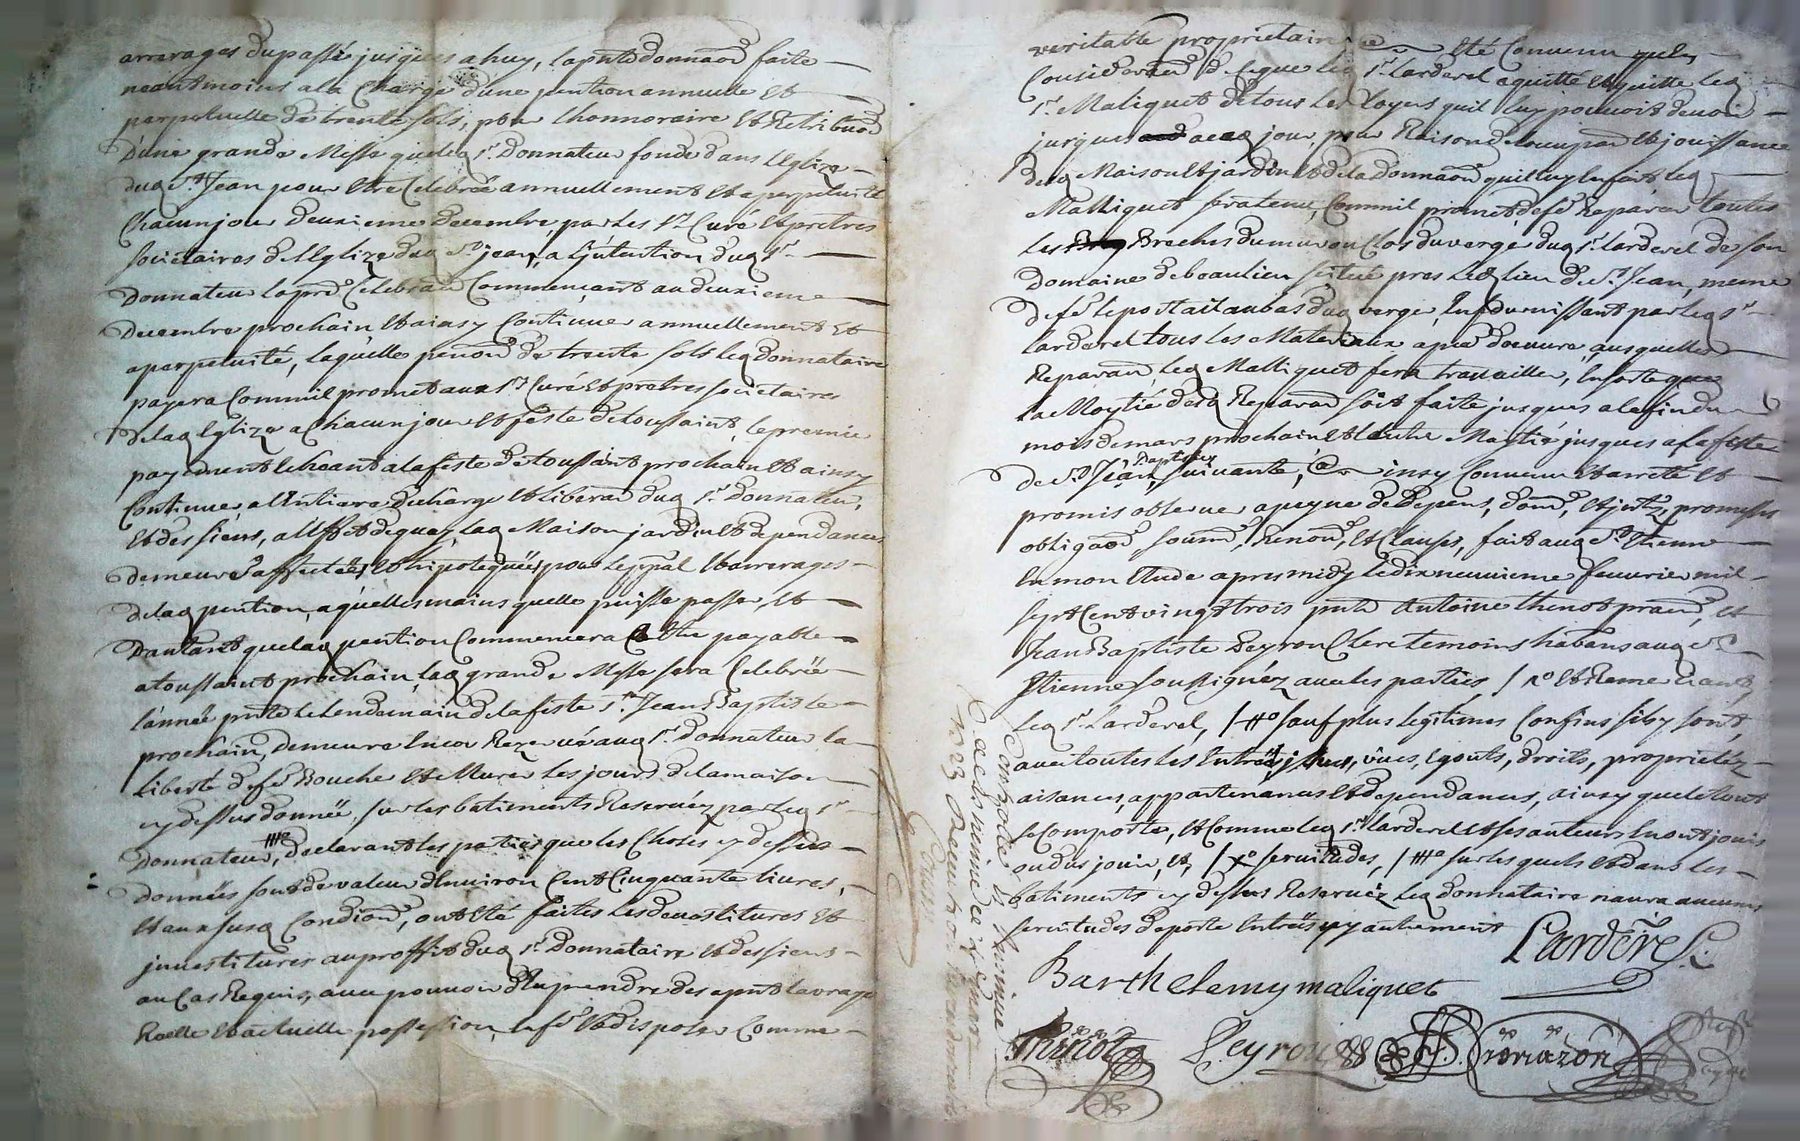 arrerages du passé jusques a huy, la pnte donnaon faite
neantmoins a la charge d'une pention annuelle et
perpetuelle de trente sols, pour l'honnoraire et Retribuon
D'une grande Messe que led sr Donnateur fonde dans l'Eglize
dud st Jean pour être Celebrée annuellement et a perpetuité
Chacun jour deuxieme Decembre, par les srs Curé et prêtres
sociétaires de l'Eglize dud st jean, a l'intention dud sr
Donnateur la pre Celebraon Commençant au deuxieme
Decembre prochain et ainsy Continuer annuellement et
a perpetuité, laquelle penon de trente sols led donnataire
payera Comme il promet aux srs Curé et prêtres sociétaires
de lad Eglize a chacun jour et feste de toussaint, le premier
payement echeant a la feste de toussaint prochain et ainsy
Continuer, a l'Entiere decharge et liberaon dud sr donnateur,
et des siens, a l'effet de quoy, lad Maison jardin et dependances
demeure affectée, et hipotequée, pour le ppal et arrerages
de lad pention, a quelles mains quelle puisse passer, et
D'autant que lad pention Commencera a être payable
a toussaint prochain, lad grande Messe sera Celebrée
l'année pnte le lendemain de la feste st Jean Baptiste
prochain, demeure Encor Rezervé aud sr Donnateur la
liberté de fe Boucher et Murer les jours de la maison
cy dessus donnée, sur les batiments Reservéz par led sr
Donnateur, declarant les parties que les Choses cy dessus
données sont de valeur d'Environ Cent Cinquante livres,
et aux susd Condiõns, ont été faites les devestitures et
jnvestitures au proffit dud sr Donnataire et des siens
au Cas Requis, avec pouvoir d'En prendre des a pnt la vraye
Réelle et actuelle possession, en fe et disposer Comme
veritable proprietaire été Convenu
Consideraon de ce que led sr larderel a quitté et quitte led
sr Maliquet de tous les loyers quil luy pouvoit devoir
jusques a ced jour, pour Raison de l'occupaon et jouissance
desd Maison et jardin et de la donnaon quil luy En fait, led
Malliquet sera tenu, Comme il promet de fe Reparer toutes
les Breches du mur ou Clos du vergé dud sr larderel de son
Domaine de beaulieu, scitué pres led lieu de st Jean, meme
de fe le portail au bas dud vergé, En fournissant par led sr
larderel tous les Materiaux a pied d'oeuvre, ausquelles
Reparaons, led Malliquet fera travailler, En sorte que
la Moytié desd Reparaons soit faite jusques a la fin du
mois de mars prochain et l'autre Moytié jusques a la feste
de st Jean Baptiste suivante, ainsy Convenu et arreté et
promis observer a peyne de Depens, dom, et jnts, promesses
obligaons, soumons, Renons, et Clauses, fait aud st Etienne
En mon Etude apres midy le dix neuvieme fevrier mil
sept Cent vingt trois pnts Antoine thinot praen, et
Jean Baptiste Peyron Clerc temoins habans aud st
Etienne sousignéz avec les parties,
led sr Larderel, sauf plus legitimes Confins sily sont,
avec toutes les Entrées, jssues, vües, Egouts, droits, proprietéz
aisances, appartenances et dependances, ainsy que le tout
se Comporte, et Comme led sr larderel et ses auteurs En ont joui
ou dus jouir, et, servitudes, sur les quels et dans les
batiments cy dessus Reservéz led donnataire naura aucunes
servitudes de porte Entrée, ny autrement
Larderel
Barthelemy maliquet
Thinot Peyron
Controlé a st Etienne